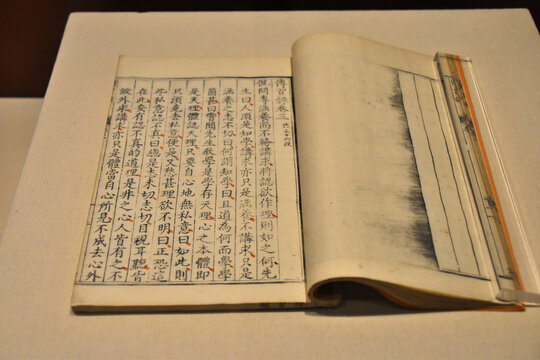 傳習錄卷三
侃問專涵養而不務講求將認欲作理則如之何先
生曰人須是知學講求亦只是涵養不講求只是
涵養之志不切曰何謂知學曰且道為何而學學
箇甚曰嘗聞先生教學是學存天理心之本體即
是天理體認天理只要自心地無私意曰如此則
只須克去私意便是又愁甚理欲不明曰正恐這
些私意認不真曰總是志未切志切目視耳聽皆
在此安有認不真的道理是非之心人皆有之不
假外求講求亦只是體當自心所見不成去心外